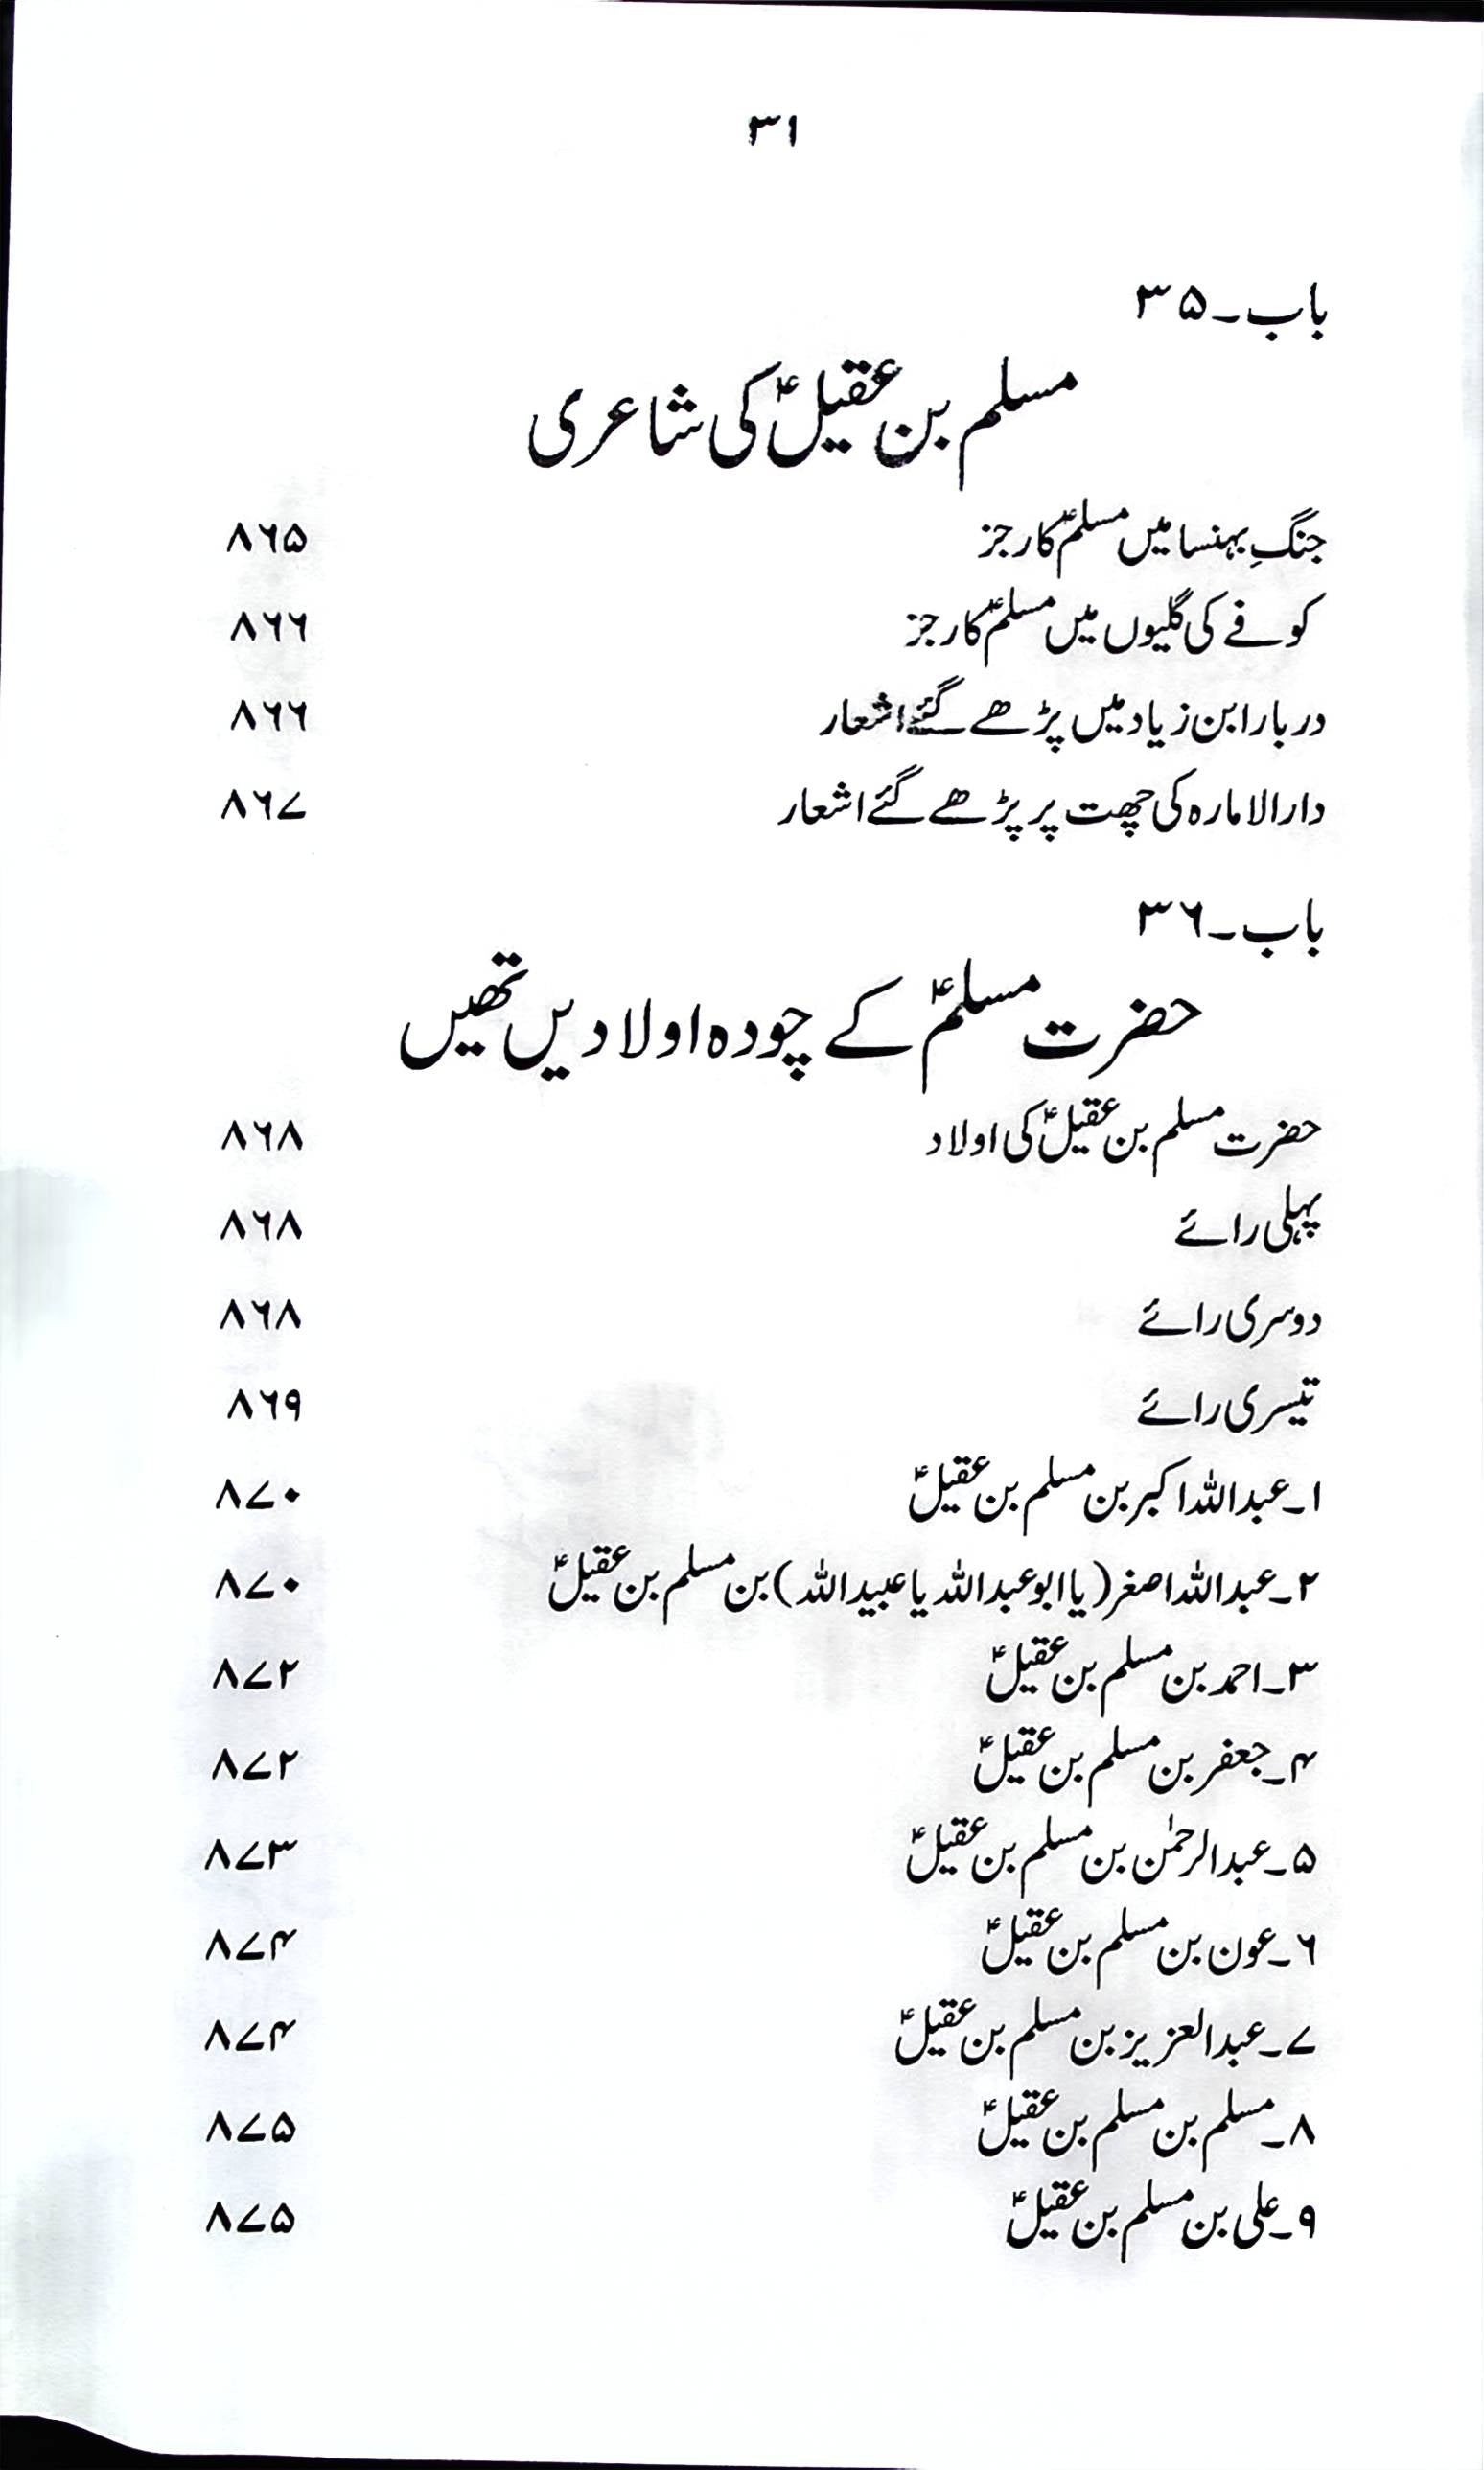 ۳۱
باب۔۳۵
مسلم بن عقیلؑ کی شاعری
جنگِ بہنسا میں مسلمؑ کا رجز ۸۶۵
کوفے کی گلیوں میں مسلمؑ کا رجز ۸۶۶
دربار ابن زیاد میں پڑھے گئے اشعار ۸۶۶
دارالامارہ کی چھت پر پڑھے گئے اشعار ۸۶۷
باب۔۳۶
حضرت مسلمؑ کے چودہ اولادیں تھیں
حضرت مسلم بن عقیلؑ کی اولاد ۸۶۸
پہلی رائے ۸۶۸
دوسری رائے ۸۶۸
تیسری رائے ۸۶۹
۱۔عبداللہ اکبر بن مسلم بن عقیلؑ ۸۷۰
۲۔عبداللہ اصغر (یا ابوعبداللہ یا عبیداللہ) بن مسلم بن عقیلؑ ۸۷۰
۳۔احمد بن مسلم بن عقیلؑ ۸۷۲
۴۔جعفر بن مسلم بن عقیلؑ ۸۷۲
۵۔عبدالرحمٰن بن مسلم بن عقیلؑ ۸۷۳
۶۔عون بن مسلم بن عقیلؑ ۸۷۴
۷۔عبدالعزیز بن مسلم بن عقیلؑ ۸۷۴
۸۔مسلم بن مسلم بن عقیلؑ ۸۷۵
۹۔علی بن مسلم بن عقیلؑ ۸۷۵